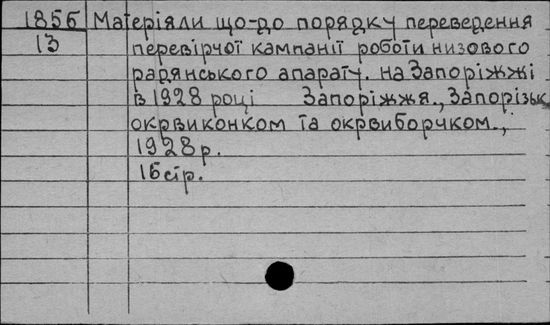 1856 Матеріяли що-до порядку переведення
13 перевірчої кампанії роботи низового
радянського апарату. на Запоріжжі
в 1928 році Запоріжжя., Запорізьк
окрвиконком та окрвиборчком.,
1928 р.
16 стр.